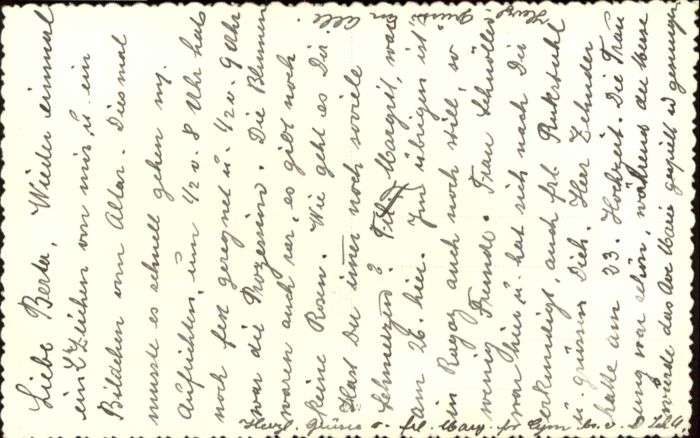 Liebe Berta, Wieder einmal
ein Zeichen von mir u. ein
Bildchen vom Altar. Diesmal
musste es schnell gehen m.
Aufrichten, um 1/2 v. 8 Uhr hats
noch fest geregnet u. 1/2 v. 9 Uhr
war die Prozession. Die Blumen
waren auch rar, es gibt noch
keine Rosen. Wie geht es Dir
Hast Du immer noch soviele
Schmerzen? Frl. Margrit, war
am 26. hier. Im übrigen ist
in Ragaz auch noch still, so
wenig Fremde. Frau Schnöller
war hier u. hat sich nach Dir
erkundigt, auch frl. Ruckstuhl
u. grüssen Dich. Herr Zehnder
hatte am 23. Hochzeit. Die Trau
ung war schön, während der Messe
wurde das Ave Maria gespielt u gesungen
Herzl. Grüsse v. frl. Marg.
Herzl. Grüsse
an alle.